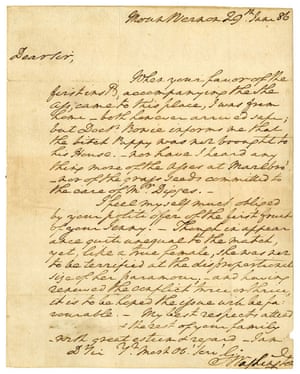 Mount Vernon 29th Jan: 86
Dear Sir,
When your favor of the
first inst., accompanying the She
Ass, came to this place, I was from
home – both however arrived safe;
but Doctr. Bowie informs me that
the bitch Puppy was not brought to
his House. – nor have I heard any
thing more of the asses at Marlbro'
– nor of the grass Seeds committed to
the care of Mr. Digges. –
I feel myself much obliged
by your polite offer of the first fruit
of your Jenny. – Though in appear
ance quite unequal to the match,
yet, like a true female, she was not
to be terrified at the disproportional
size of her Paramour. – and having
renewed the conflict twice or thrice,
it is to be hoped the issue will be fa-
vourable. – My best respects attend
the rest of your family
with great esteem & regard – I am
Dr Sir Yr. Most Ob. Servt.
G. Washington